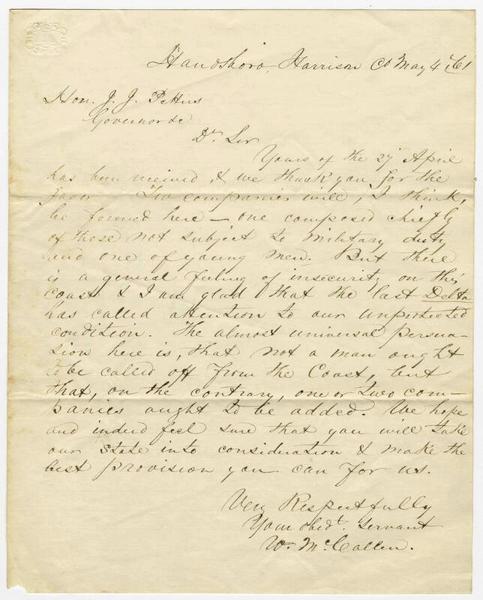 Handsboro, Harrison Co May 4th /61
Hon. J. J. Pettus
Governor &c
Dr Sir
Yours of the 27th April
has been received & we thank you for the
favor. Two companies will, I think,
be formed here — one composed chiefly
of those not subject to military duty
and one of young men. But there
is a general feeling of insecurity on this
coast & I am glad that the last Delta
has called attention to our unprotected
condition. The almost universal persua-
sion here is, that not a man ought
to be called off from the Coast, but
that, on the contrary, one or two com-
panies ought to be added. We hope
and indeed feel sure that you will take
our state into consideration & make the
best provision you can for us.
Very Respectfully
Your obedt. Servant
W. McCallen.